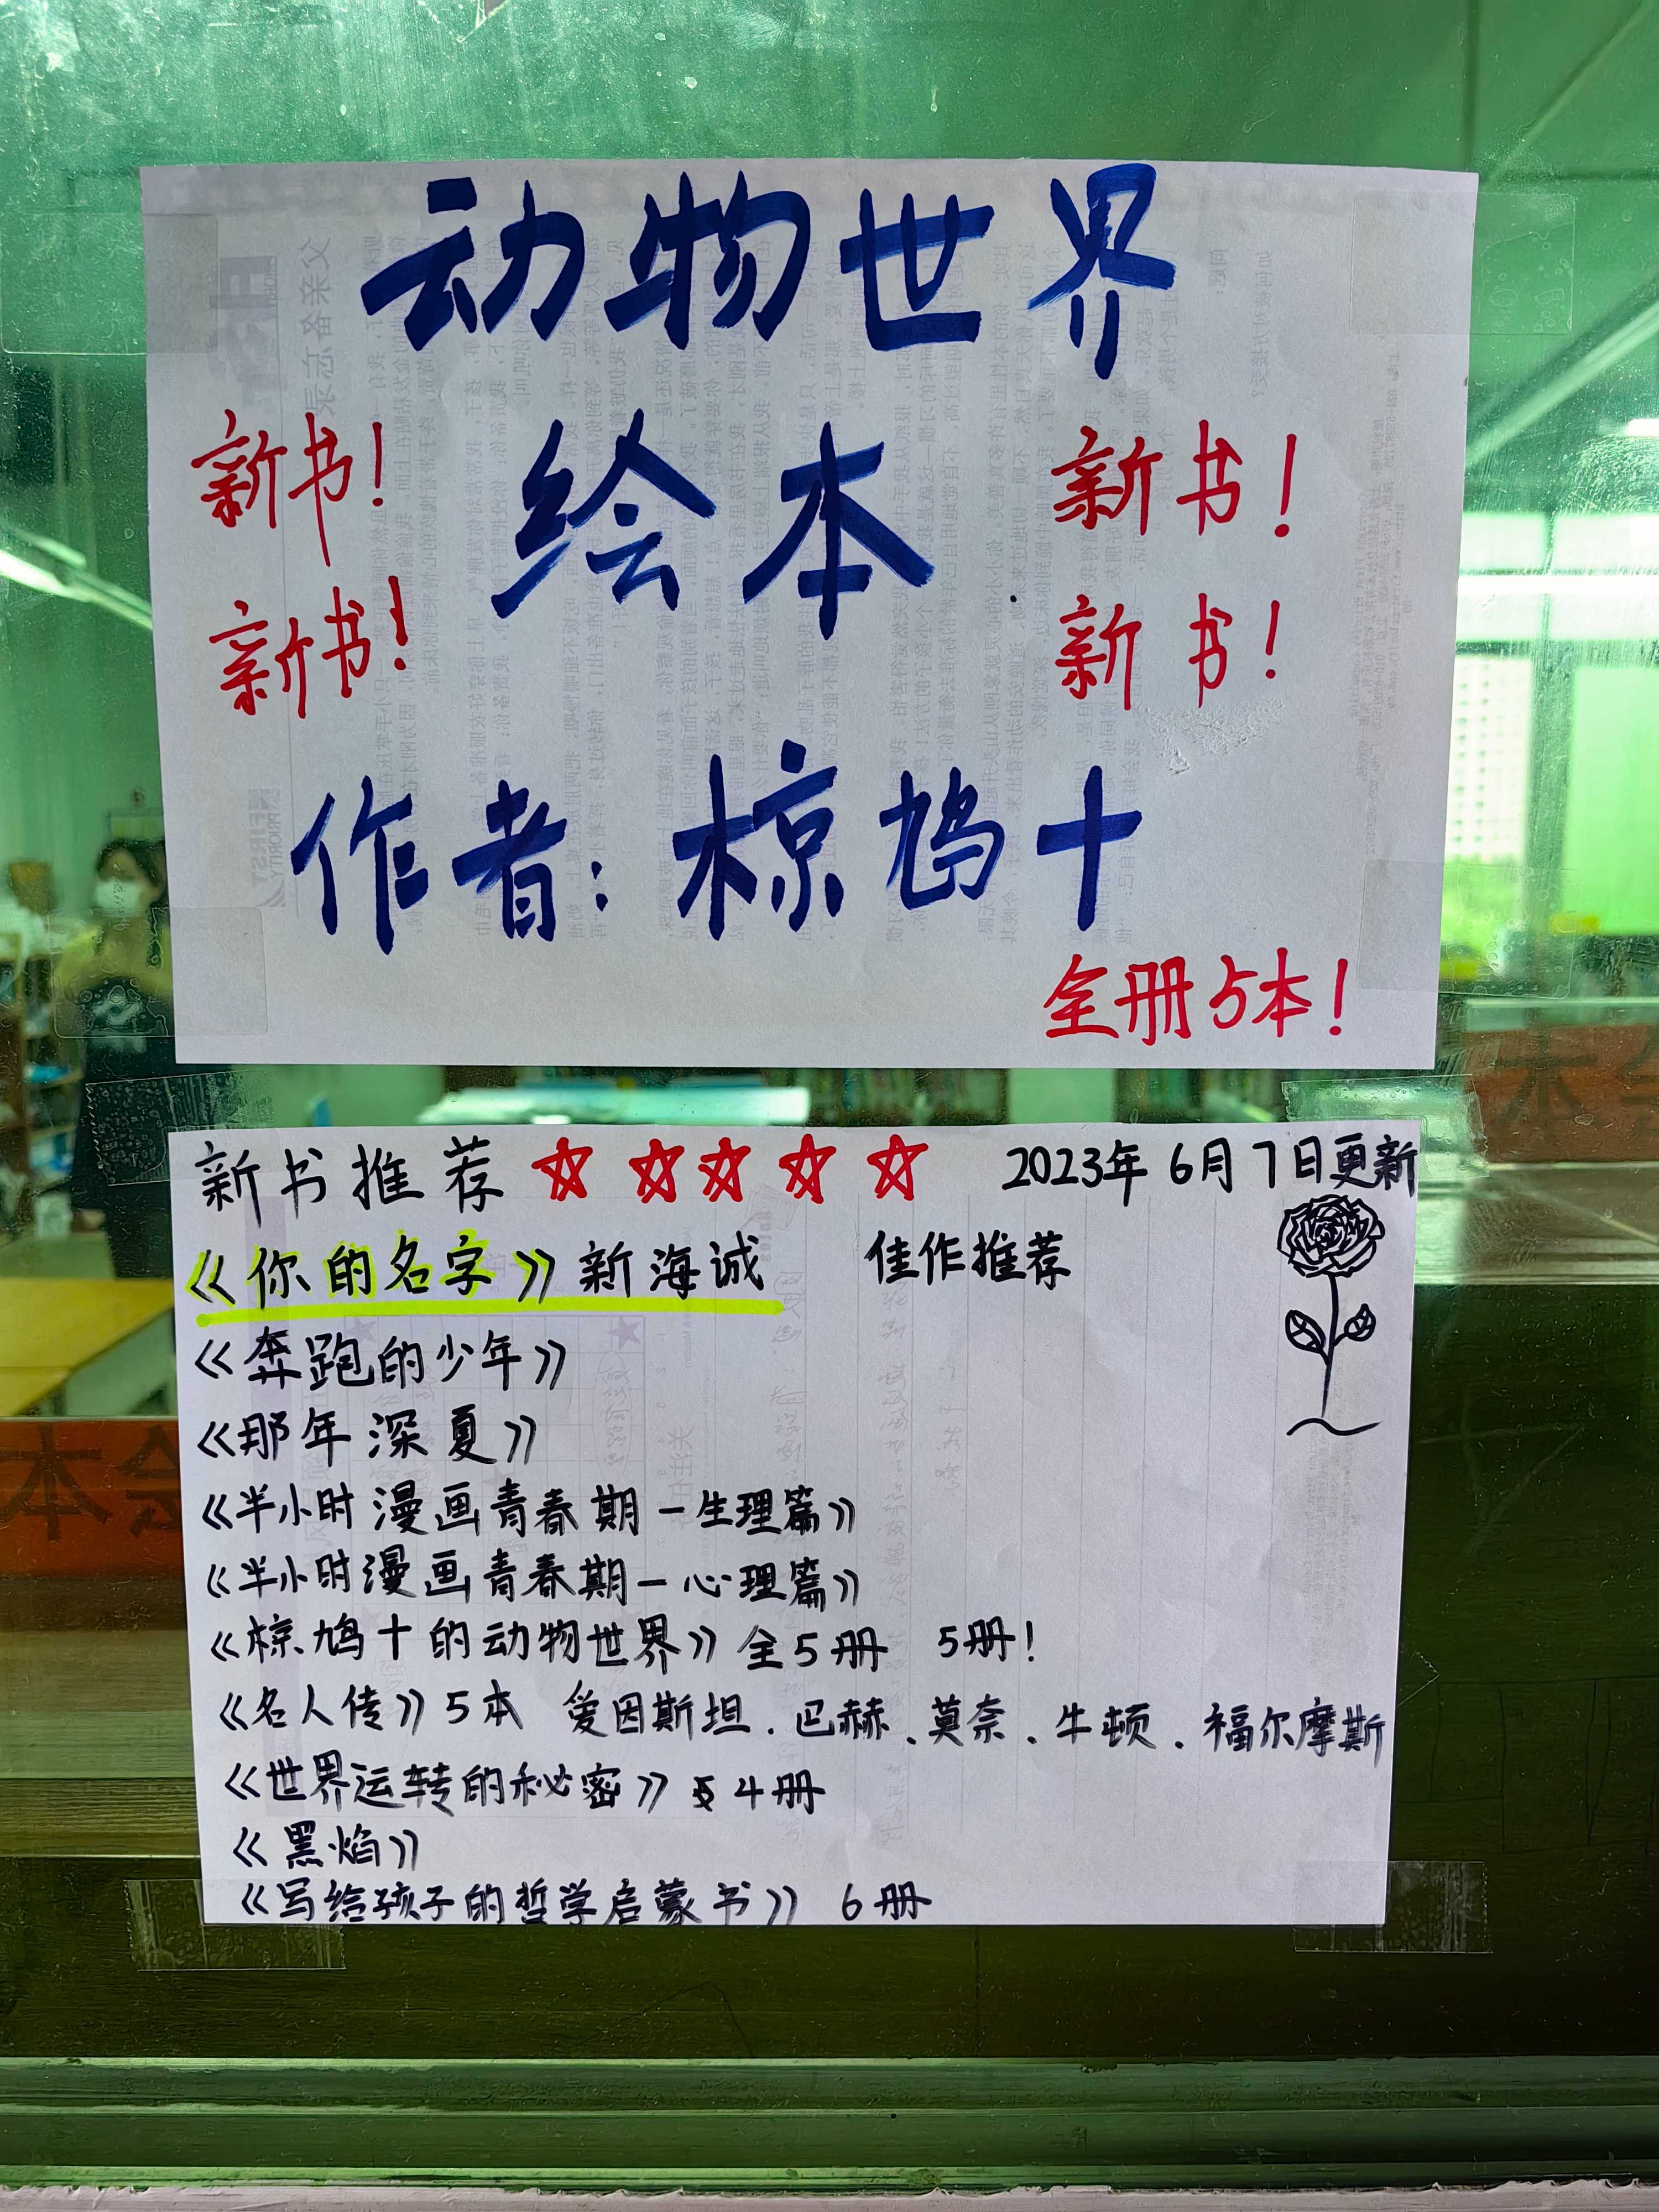 动物世界
新书！ 绘本 新书！
新书！ 新书！
作者：椋鸠十
全册5本！
新书推荐 ☆☆☆☆☆ 2023年6月7日更新
《你的名字》新海诚 佳作推荐
《奔跑的少年》
《那年深夏》
《半小时漫画青春期－生理篇》
《半小时漫画青春期－心理篇》
《椋鸠十的动物世界》全5册 5册！
《名人传》5本 爱因斯坦、巴赫、莫奈、牛顿、福尔摩斯
《世界运转的秘密》4册
《黑焰》
《写给孩子的哲学启蒙书》 6册